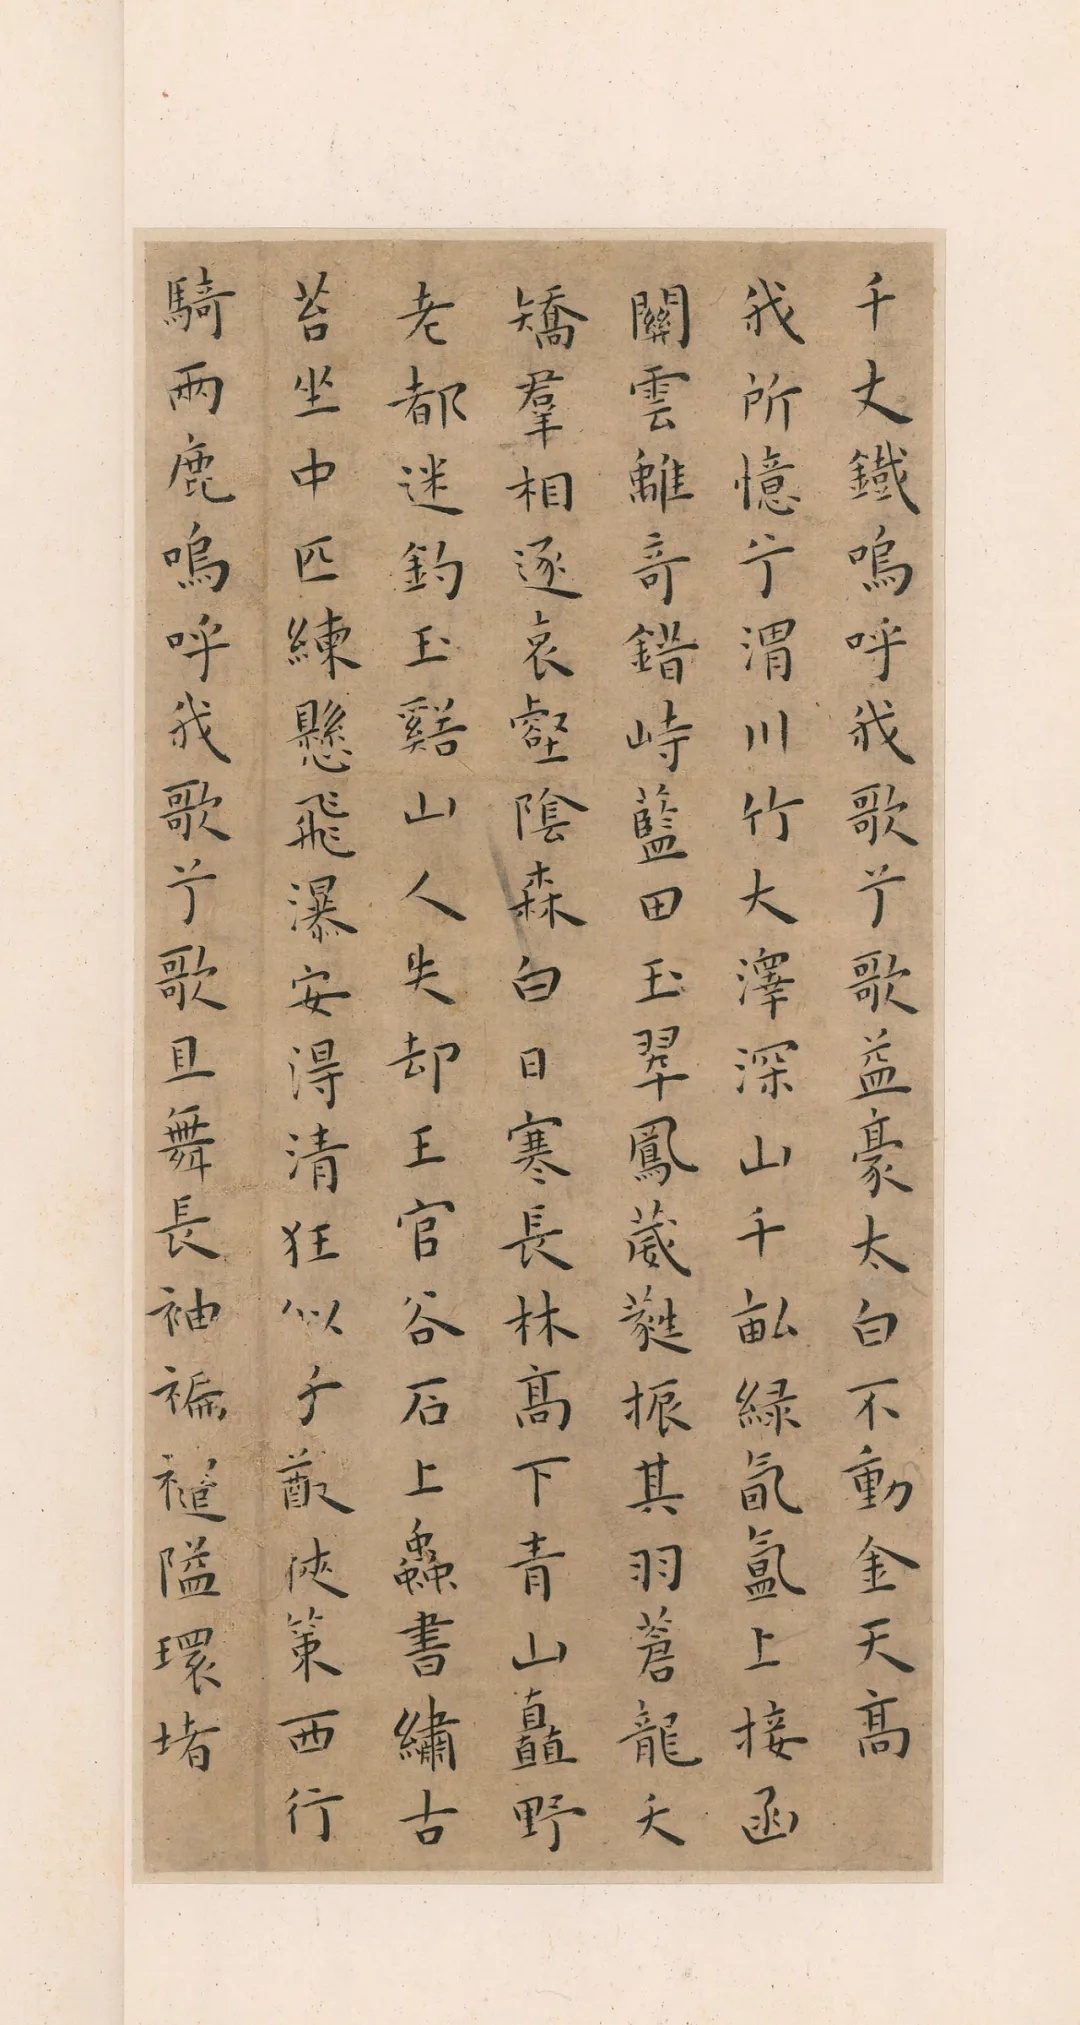 千丈鐵嗚呼我歌兮歌益豪太白不動金天高
我所憶兮渭川竹大澤深山千畝緑氤氳上接函
關雲離奇錯峙藍田玉翠鳳葳蕤振其羽蒼龍夭
矯羣相逐哀壑陰森白日寒長林髙下青山矗野
老都迷釣玉谿山人失却王官谷石上蟲書繡古
苔坐中匹練懸飛瀑安得清狂似子猷俠策西行
騎兩鹿嗚呼我歌兮歌且舞長袖褊褼隘環堵